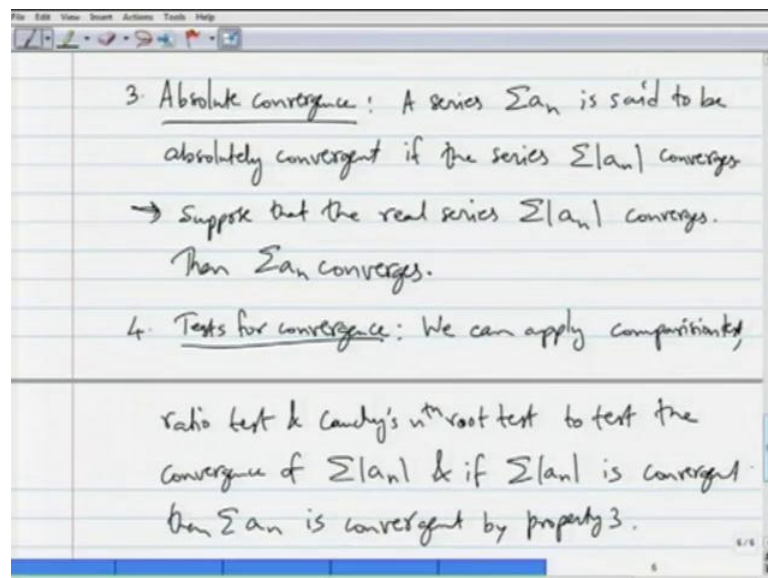 File Edit View Insert Actions Tools Help
3. Absolute convergence : A series Σaₙ is said to be
absolutely convergent if the series Σ|aₙ| converges
→ Suppose that the real series Σ|aₙ| converges.
Then Σaₙ converges.
4. Tests for convergence : We can apply
ratio test & Cauchy's nᵗʰ root test to test the
convergence of Σ|aₙ| & if Σ|aₙ| is convergent
then Σaₙ is convergent by property 3.
6/6
6